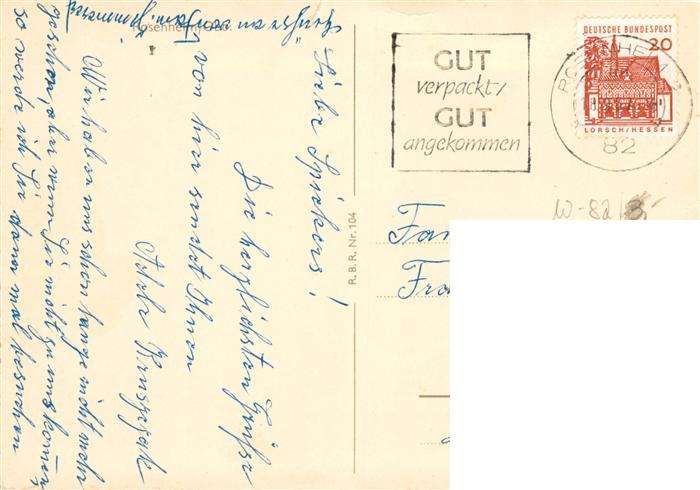 Grüße an
Rosenheim/Obb.
Liebe Spickers!
Die herzlichsten Grüße
von hier sendet Ihnen
Adele
Wir haben uns schon lange nicht mehr
gesehen, aber wenn Sie nicht zu uns kommen,
so werde ich Sie dann mal besuchen
R. B. R. Nr. 104
GUT
verpackt/
GUT
angekommen
DEUTSCHE BUNDESPOST
20
LORSCH/HESSEN
ROSENHEIM
82
W-82
Fam